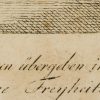 en übergeben i
ne Freyheit